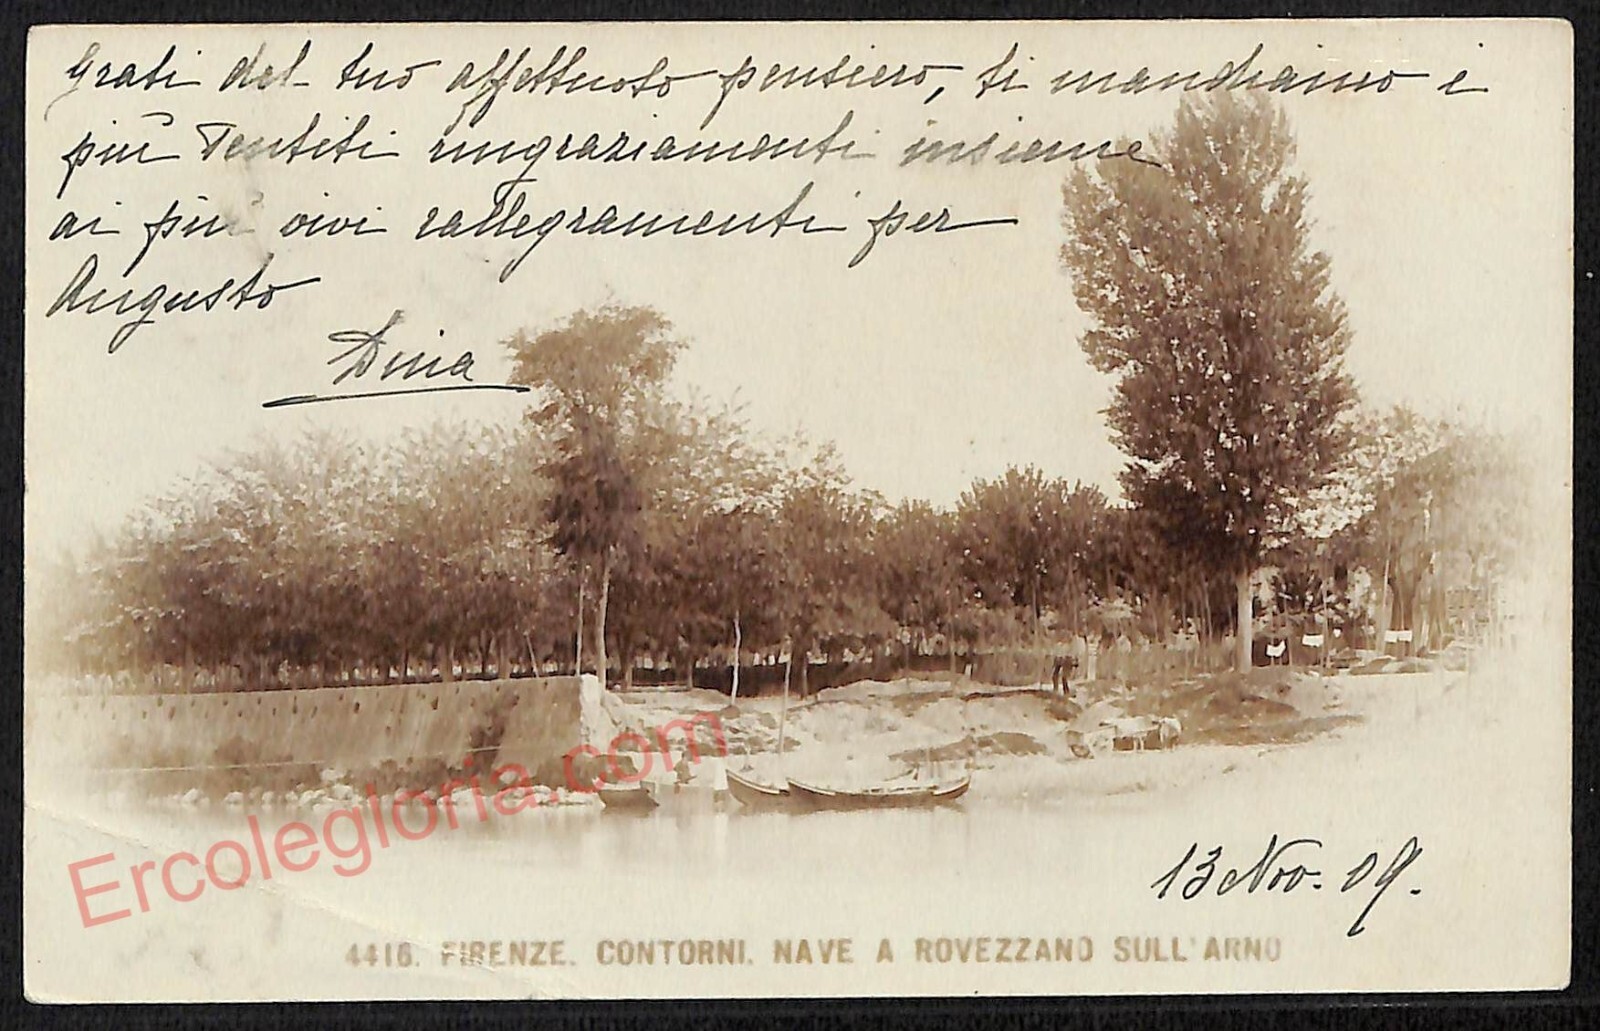 Grati del tuo affettuoso pensiero, ti mandiamo i
più sentiti ringraziamenti insieme
ai più vivi rallegramenti per
Augusto
Dina
Ercolegloria.com
13 Nov. 09.
4416. FIRENZE. CONTORNI. NAVE A ROVEZZANO SULL'ARNO